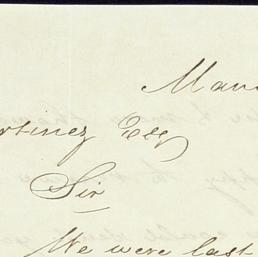 Man
rtinez Esq
Sir
We were last